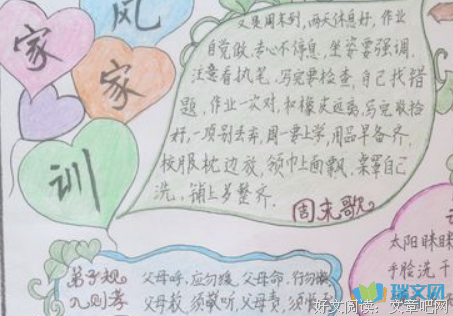 风
家
家
训
又是周末到,两天休息好,作业
自觉做,专心不停息,坐姿要强调,
注意看执笔,写完要检查,自己找错
题,作业一次对,和橡皮远离,写完收拾
好,一项别丢弃,周一要上学,用品早备齐,
校服枕边放,领巾上面飘,桌罩自己
洗,铺上多整齐.
周末歌
弟子规
入则孝
父母呼,应勿缓,父母命,行勿懒
父母教,须敬听,父母责,须
太阳眯眯
手脸洗干
瑞文网
好文阅读:文章吧网